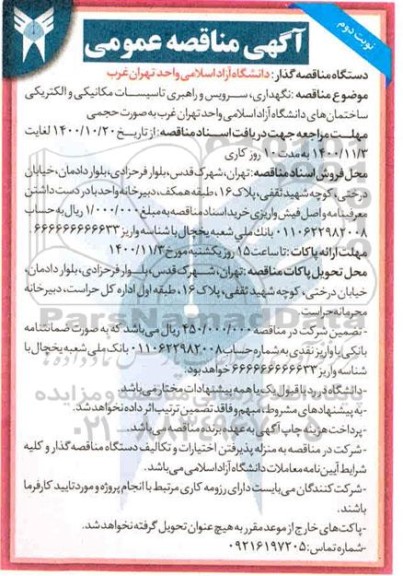 نوبت دوم
آگهی مناقصه عمومی
دستگاه مناقصه گذار: دانشگاه آزاد اسلامی واحد تهران غرب
موضوع مناقصه: نگهداری، سرویس و راهبری تاسیسات مکانیکی و الکتریکی
ساختمان های دانشگاه آزاد اسلامی واحد تهران غرب به صورت حجمی
مهلت مراجعه جهت دریافت اسناد مناقصه: از تاریخ ۱۴۰۰/۱۰/۲۰ لغایت
۱۴۰۰/۱۱/۳ به مدت ۱۰ روز کاری
محل فروش اسناد مناقصه: تهران، شهرک قدس، بلوار فرحزادی، بلوار دادمان، خیابان
درختی، کوچه شهید ثقفی، پلاک ۱۶، طبقه همکف، دبیرخانه واحد با در دست داشتن
معرفینامه و اصل فیش واریزی خرید اسناد مناقصه به مبلغ ۱/۰۰۰/۰۰۰ ریال به حساب
۰۱۱۰۶۲۲۹۸۲۰۰۸ بانک ملی شعبه یخچال با شناسه واریز ۶۶۶۶۶۶۶۶۶۶۳۳
مهلت ارائه پاکات: تا ساعت ۱۵ روز یکشنبه مورخ ۱۴۰۰/۱۱/۳
محل تحویل پاکات مناقصه: تهران، شهرک قدس، بلوار فرحزادی، بلوار دادمان،
خیابان درختی، کوچه شهید ثقفی، پلاک ۱۶، طبقه اول اداره کل حراست، دبیرخانه
محرمانه حراست.
-تضمین شرکت در مناقصه ۴۵۰/۰۰۰/۰۰۰ ریال می باشد که به صورت ضمانتنامه
بانکی یا واریز نقدی به شماره حساب ۰۱۱۰۶۲۲۹۸۲۰۰۸ بانک ملی شعبه یخچال با
شناسه واریز ۶۶۶۶۶۶۶۶۶۶۳۳ خواهد بود.
-دانشگاه در رد یا قبول یک یا همه پیشنهادات مختار می باشد.
-به پیشنهادهای مشروط، مبهم و فاقد تضمین ترتیب اثر داده نخواهد شد.
-پرداخت هزینه چاپ آگهی به عهده برنده مناقصه می باشد.
-شرکت در مناقصه به منزله پذیرفتن اختیارات و تکالیف دستگاه مناقصه گذار و کلیه
شرایط آیین نامه معاملات دانشگاه آزاد اسلامی می باشد.
-شرکت کنندگان می بایست دارای رزومه کاری مرتبط با انجام پروژه و مورد تایید کارفرما
باشند.
-پاکت های خارج از موعد مقرر به هیچ عنوان تحویل گرفته نخواهد شد.
-شماره تماس: ۰۹۲۱۶۱۹۷۲۰۵